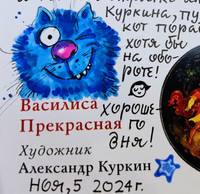 Куркина, пу
кот порa
хотя бы
на обо-
роте!
Василиса
Прекрасная
хороше-
го
дня!
Художник
Александр Куркин
Ноя, 5 2024г.